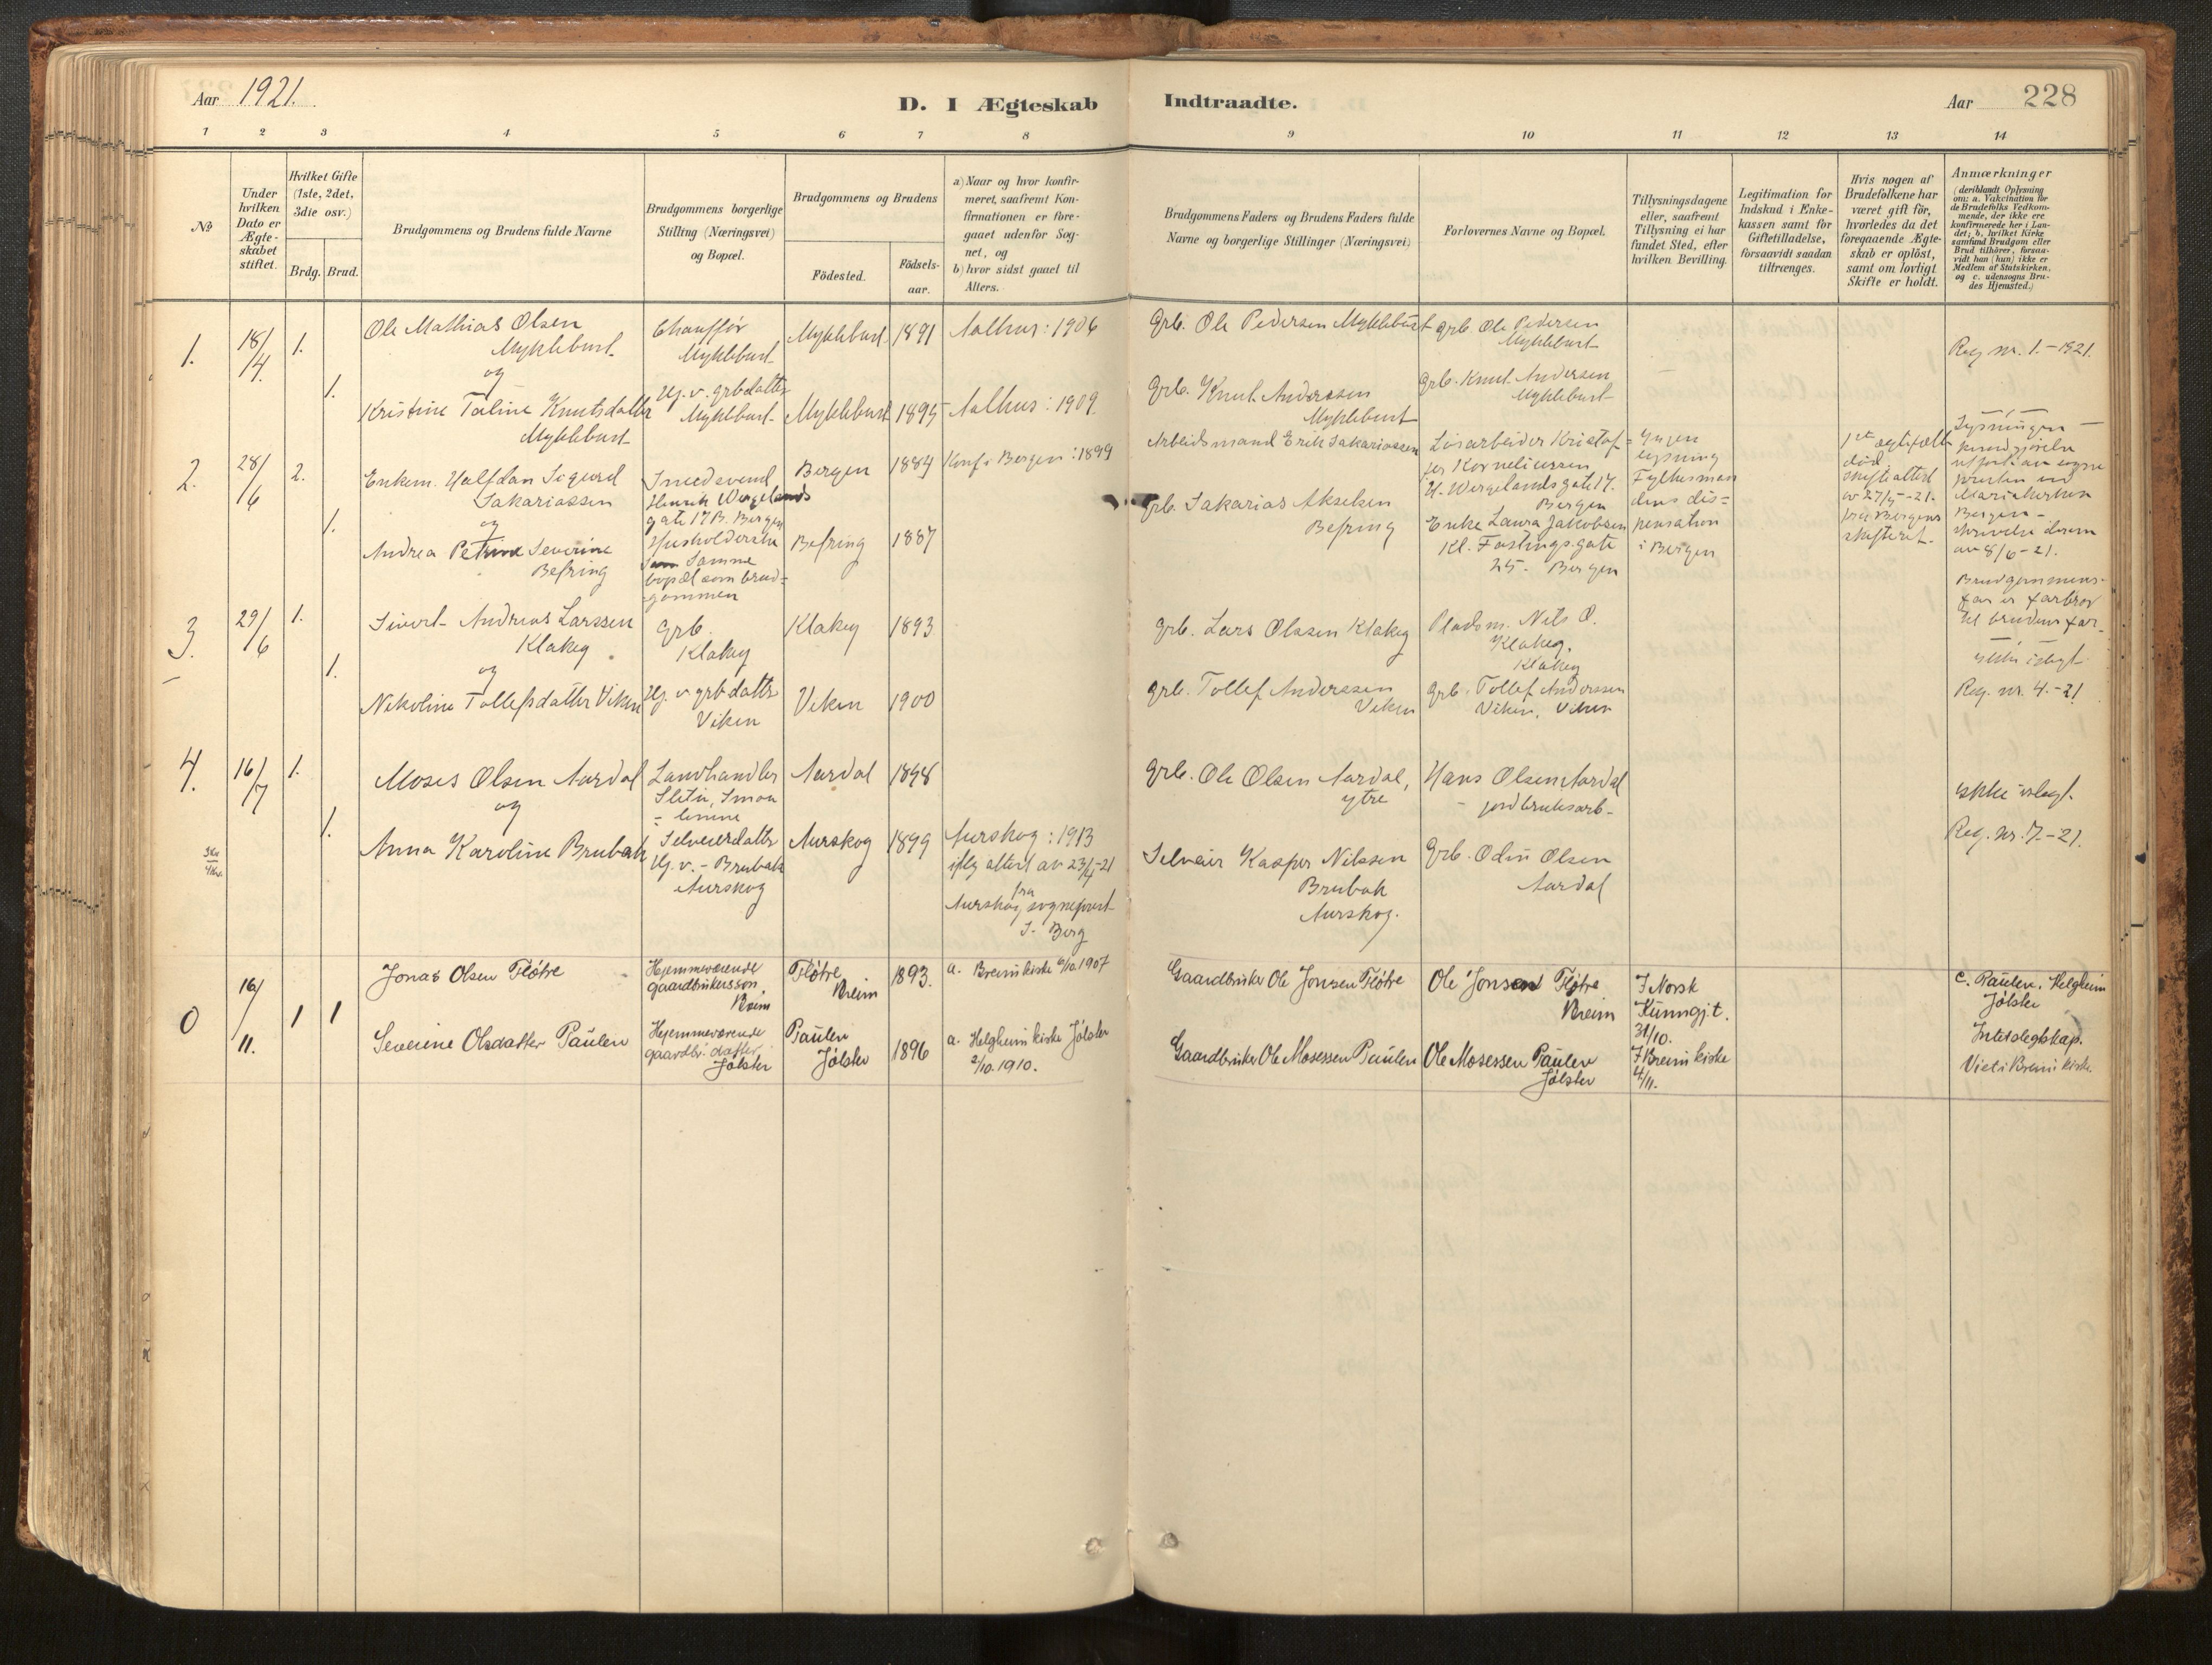 Aar 1921.
D. I Ægteskab
Indtraadte.
Aar 228
1 2 3 4 5 6 7 8
9 10 11 12 13 14
№
Under hvilken Dato er Ægte-skabet stiftet.
Hvilket Gifte (1ste, 2det, 3die osv.)
Brdg. Brud.
Brudgommens og Brudens fulde Navne
Brudgommens borgerlige Stilling (Næringsvei) og Bopæl.
Brudgommens og Brudens
Födested.
Födsels-aar.
a) Naar og hvor konfir-
meret, saafremt Kon-
firmationen er fore-
gaaet udenfor Sog-
net, og
b) hvor sidst gaaet til
Alters.
Brudgommens Faders og Brudens Faders fulde
Navne og borgerlige Stillinger (Næringsvei)
Forlovernes Navne og Bopæl.
Tillysningsdagene
eller, saafremt
Tillysning ei har
fundet Sted, efter
hvilken Bevilling.
Legitimation for
Indskud i Enke-
kassen samt for
Giftetilladelse,
forsaavidt saadan
tiltrænges.
Hvis nogen af
Brudefolkene har
været gift för,
hvorledes da det
foregaaende Ægte-
skab er oplöst,
samt om lovligt
Skifte er holdt.
Anmærkninger
(deriblandt Oplysning
om: a. Vakcination for
de Brudefolks Vedkom-
mende, der ikke ere
konfirmerede her i Lan-
det; b. hvilket Kirke
samfund Brudgom eller
Brud tilhörer, forsaa-
vidt han (hun) ikke er
Medlem af Statskirken,
og c. udensogns Bru-
des Hjemsted.)
1.
18/4.
1.
Ole Mathias Olsen
Myklebust
og
1.
Kristine Taline Knutsdatter
Myklebust
Chauffør
Myklebust
Hj. v. grbdatter
Myklebust
Myklebust 1891 Aalhus: 1906
Myklebust 1895 Aalhus: 1909.
Grb. Ole Pedersen Myklebust
Grb. Knut Anderssen
Myklebust
grb. Ole Pedersen
Myklebust
Grb. Knut Andersen
Myklebust
Reg nr. 1.-1921.
2.
28/6
2.
Enkem. Halfdan Sigurd
Sakariassen
og
1.
Andrea Petrine Severine
Befring
Smedsvend
Henrik Wergelands
gate 17 B. Bergen
Husholderske
Samme
bopæl som brud-
gommen
Bergen 1884 Konf i Bergen: 1899
Befring 1887
Arbeidsmand Erik Sakariassen
Grb. Sakarias Akselsen
Befring
Løsarbeider Kristof=
fer Korneliussen
H. Wergelandsgate 17.
Bergen
Enke Laura Jakobsen
Kl. Fastingsgate
25. Bergen
Ingen
lysning
Fylkesman
dens dis=
pensation
i Bergen
1ste egtefælle
død,
skifteattest
av 27/5-21.
fra Bergens
skifteret.
Lysningen
kundgjørelse
utført av sogne
presten ved
Mariakirken
Bergen-
skrivelse derom
av 8/6-21.
3.
29/6
1.
Sivert Andreas Larssen
Klakeg
og
1.
Nikoline Tollefsdatter Viken
Grb.
Klakeg
Hj. v grbdatter
Viken
Klakeg 1893
Viken 1900
Grb. Lars Olssen Klakeg
Grb. Tollef Anderssen
Viken
Pladsm. Nils O.
Klakeg,
Klakeg
Grb. Tollef Anderssen
Viken, Viken
Brudgommens
far er farbror
til brudens far
Reg. nr. 4.-21
4.
16/7
1.
Moses Olsen Aardal
og
1.
Anna Karoline Brubak
Landhandler
Selveierdatter
Hj. v. - Brubak
Aurskog
Aardal 1898
Aurskog 1899 Aurskog: 1913
iflg attest av 23/4-21
fra
Aurskog sogneprest
S. Berg
Grb. Ole Olsen Aardal,
ytre
Selveier Kasper Nilssen
Brubak
Aurskog.
Hans Olsen Aardal
- jordbruksarb-
Grb. Odin Olsen
Aardal
ikke i slegt.
Reg. nr. 7.-21.
0
16/11.
1 1
Jonas Olsen Fløtre
Severine Olsdatter Paulen
Hjemmeværende
gaardbrukersson
Breim
Hjemmeværende
gaardbr. datter
Jølster
Fløtre
Breim
1893. a. Breim kirke 6/10.1907
Paulen
Jølster
1896 a. Helgheim kirke Jølster
2/10.1910.
Gaardbruker Ole Jonsen Fløtre
Gaardbruker Ole Mosessen Paulen
Ole Jonsen Fløtre
Breim
Ole Mosessen Paulen
Jølster
I Norsk
Kunngj.t.
31/10.
I Breim kirke
4/11.
c. Paulen, Helgheim
Jølster
Intet slegtskap.
Viet i Breim kirke.